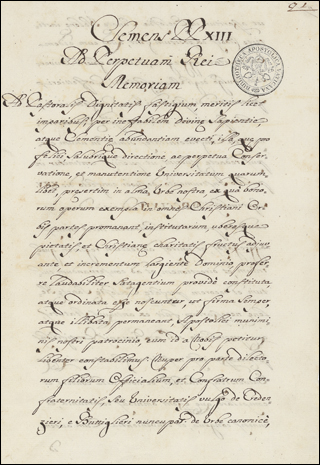 91
Clemens PP XIII
Ad Perpetuam Rei
Memoriam
Pastoralis Dignitatis fastigium meritis licet
imparibus per inexhabilem Divinae Sapientiae
atque Clementiae abundantiam evecti, illa, quae pro
felici salubrique directione, ac perpetua Conser-
vatione, et manutentione Universitatum quarum-
libet, presertim in alma Urbe nostra ex qua bono-
rum operum exempla in omnes Christiani Or-
bis partes promanant, institutarum uberesque
pietatis et Christianae charitatis fructus adiu-
vante et incrementum largiente Domino profer-
re laudabiliter satagentium provide constituta
atque ordinata esse noscuntur, ut firma semper,
atque illibata permaneant, Apostolici munimi-
nis nostri patrocinio, cum id a Nobis petitur
libenter constabilimus. Nuper pro parte dilecto-
rum filiorum Officialium, et Confratrum Con-
fraternitatis, seu Universitatis vulgo de
e nuncupat. de Urbe canonice